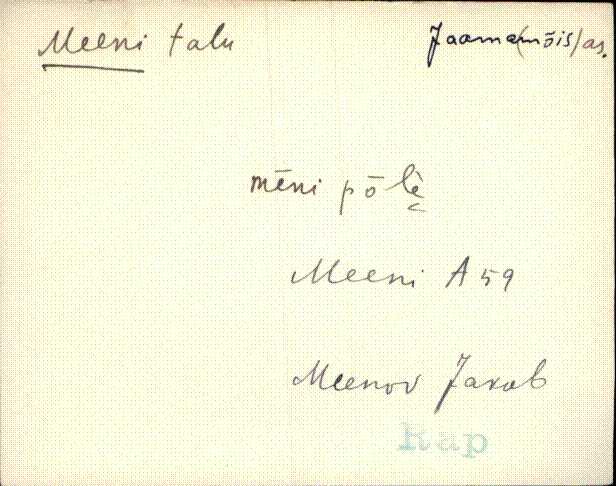 Meeni talu
Jaama(mõis) as.
mēni pōlè
Meeni A 59
Meenov Jakob
Rap